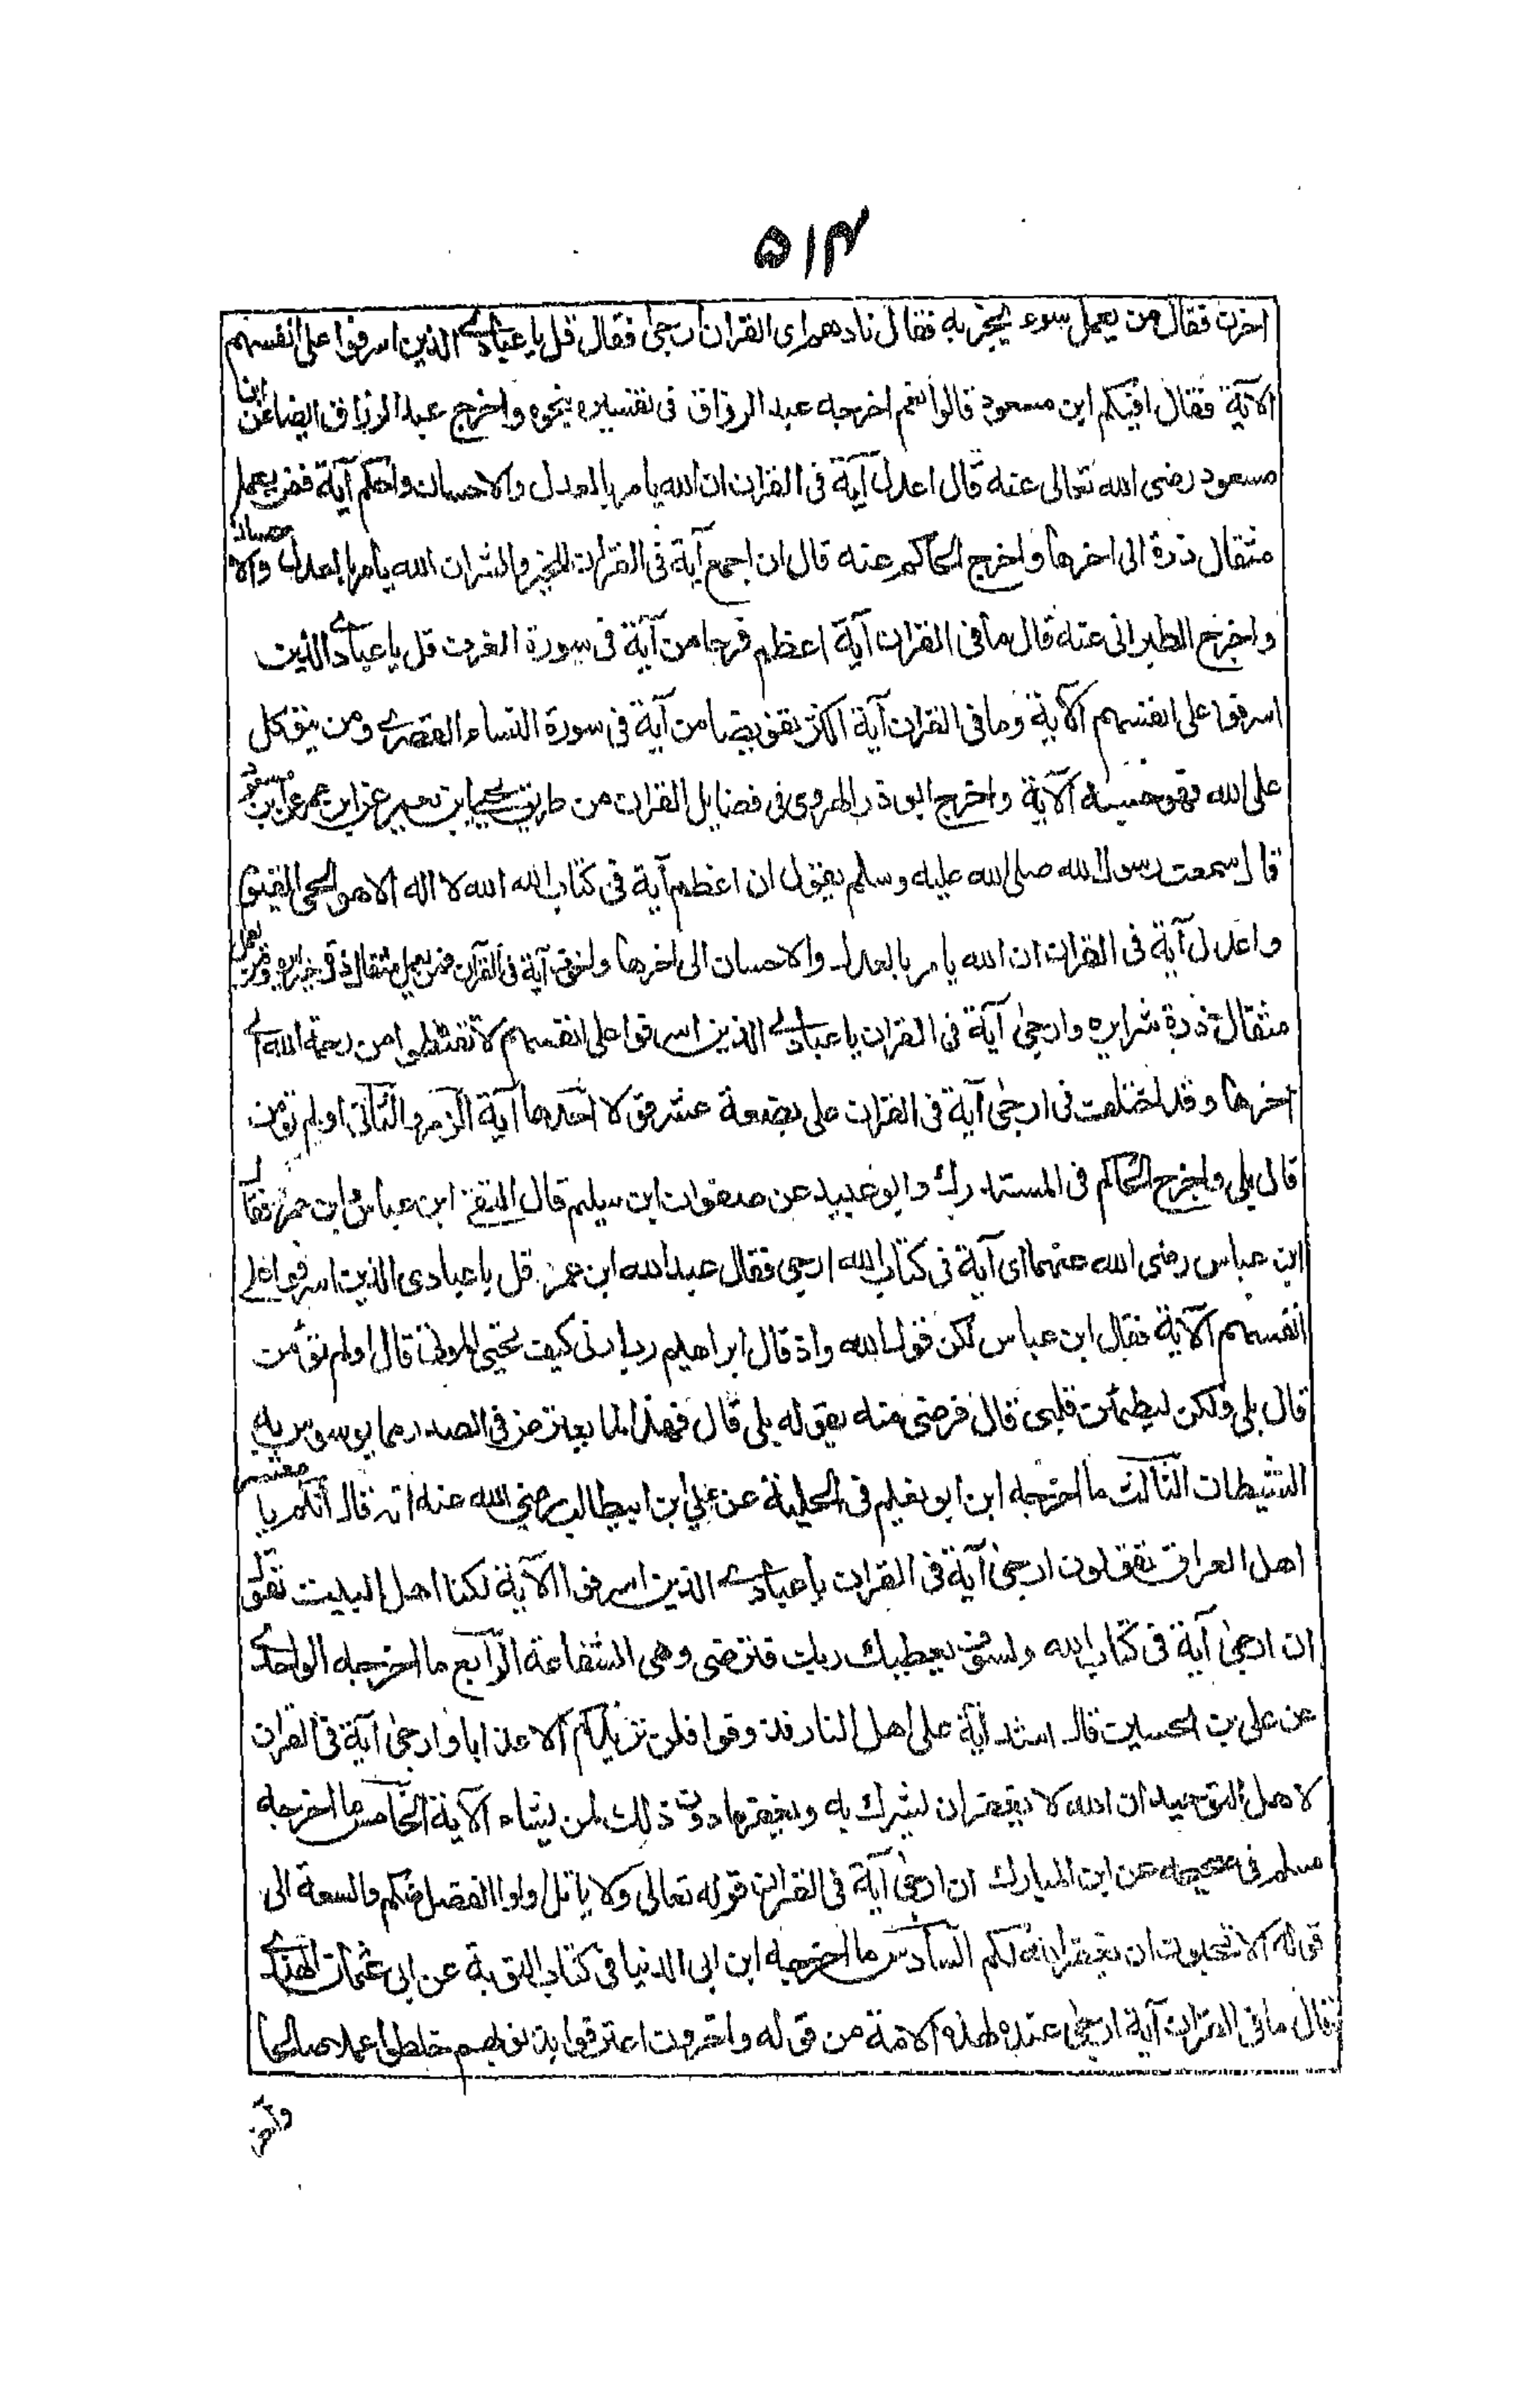 ۵۱۴
احزن فقال من يعمل سوء يجز به فقال نادهم اى القران ارجى فقال قل يا عبادى الذين اسرفوا على انفسهم
الآية فقال افيكم ابن مسعود قالوا نعم اخرجه عبد الرزاق فى تفسيره بنحوه واخرج عبد الرزاق ايضا عن ابن
مسعود رضى الله تعالى عنه قال اعدل آية فى القران ان الله يامر بالعدل والاحسان واحكم آية فمن يعمل
مثقال ذرة الى اخرها واخرج الحاكم عنه قال ان اجمع آية فى القران للخير والشر ان الله يأمر بالعدل والاحسان
واخرج الطبرانى عنه قال ما فى القران آية اعظم فرجا من آية فى سورة الغرف قل يا عبادى الذين
اسرفوا على انفسهم الآية وما فى القران آية اكثر تفويضا من آية فى سورة النساء القصرى ومن يتوكل
على الله فهو حسبه الآية واخرج ابو ذر الهروى فى فضايل القران من طريق يحيى ابن يعمر عن ابن عمر عن ابن مسعود
قال سمعت رسول الله صلى الله عليه وسلم يقول ان اعظم آية فى كتاب الله الله لا اله الا هو الحى القيوم
واعدل آية فى القران ان الله يامر بالعدل والاحسان الى اخرها واخوف آية فى القرآن فمن يعمل مثقال ذرة خيرا يره ومن يعمل
مثقال ذرة شرا يره وارجى آية فى القران يا عبادى الذين اسرفوا على انفسهم لا تقنطوا من رحمة الله الى
اخرها وقد اختلف فى ارجى آية فى القران على بضعة عشر قولا احدها آية الزمر والثانى اولم تؤمن
قال بلى واخرج الحاكم فى المستدرك وابو عبيد عن صفوان ابن سليم قال التقى ابن عباس وابن عمر فقال
ابن عباس رضى الله عنهما اى آية فى كتاب الله ارجى فقال عبد الله ابن عمر قل يا عبادى الذين اسرفوا على
انفسهم الآية فقال ابن عباس لكن قول الله واذ قال ابراهيم رب ارنى كيف تحيى الموتى قال اولم تؤمن
قال بلى ولكن ليطمئن قلبى قال فرضى منه بقوله بلى قال فهذا لما يعترض فى الصدر مما يوسوس به
الشيطان الثالث ما اخرجه ابن ابو نعيم فى الحلية عن على ابن ابيطالب رضى الله عنه انه قال انكم يا معشر
اهل العراق تقولون ارجى آية فى القران يا عبادى الذين اسرفوا الآية لكنا اهل البيت نقول
ان ارجى آية فى كتاب الله ولسوف يعطيك ربك فترضى وهى الشفاعة الرابع ما اخرجه الواحدى
عن على بن الحسين قال اشد آية على اهل النار فذوقوا فلن نزيدكم الا عذابا وارجى آية فى القران
لاهل التوحيد ان الله لا يغفر ان يشرك به ويغفر ما دون ذلك لمن يشاء الآية الخامس ما اخرجه
مسلم فى صحيحه عن ابن المبارك ان ارجى آية فى القران قوله تعالى ولا ياتل اولوا الفضل منكم والسعة الى
قوله الا تحبون ان يغفر الله لكم السادس ما اخرجه ابن ابى الدنيا فى كتاب التوبة عن ابى عثمان الهندى
قال ما فى القران آية ارجى عندى لهذه الامة من قوله واخرون اعترفوا بذنوبهم خلطوا عملا صالحا
وآخر